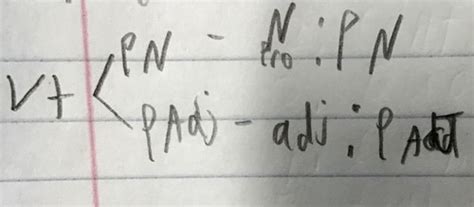 PN - N Pro : PN
V+ <
PAdj - adj : PAdd